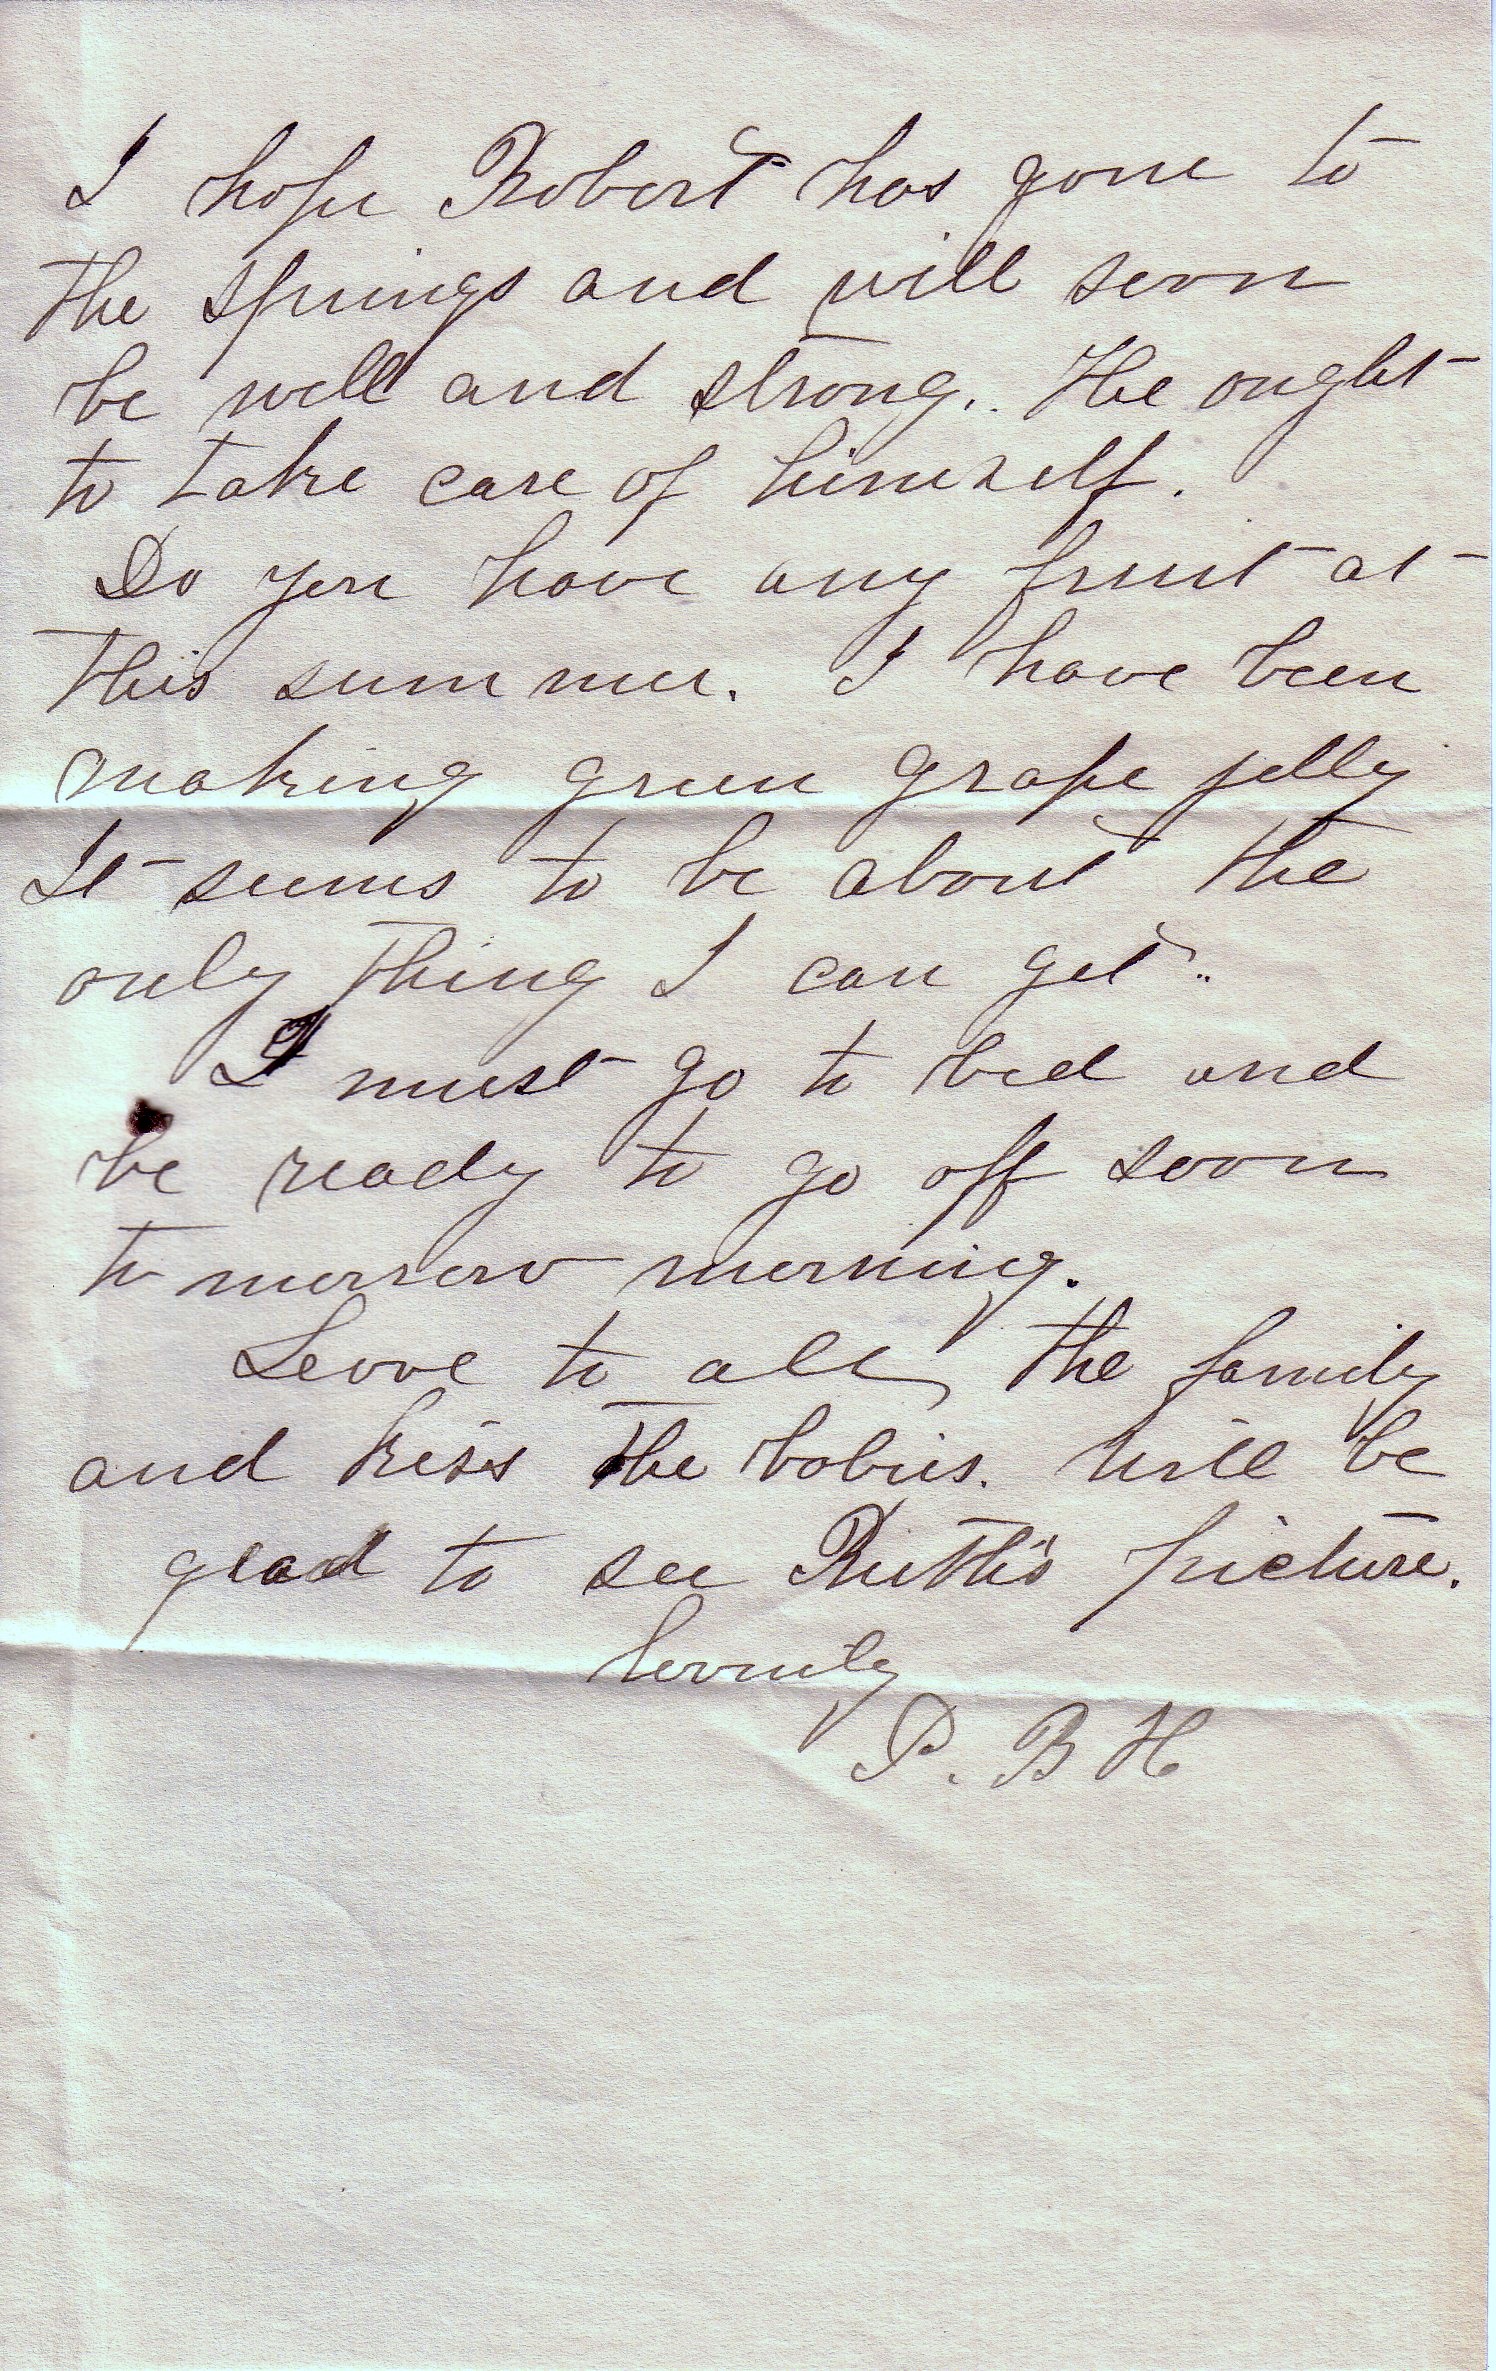 I hope Robert has gone to
the springs and will soon
be well and strong. He ought
to take care of himself.
Do you have any fruit at
this summer. I have been
making green grape jelly
It seems to be about the
only thing I can get.
I must go to bed and
be ready to go off soon
to morrow morning.
Love to all the family
and kiss the babies. Will be
glad to see Ruth's picture.
Lovingly
P. B H